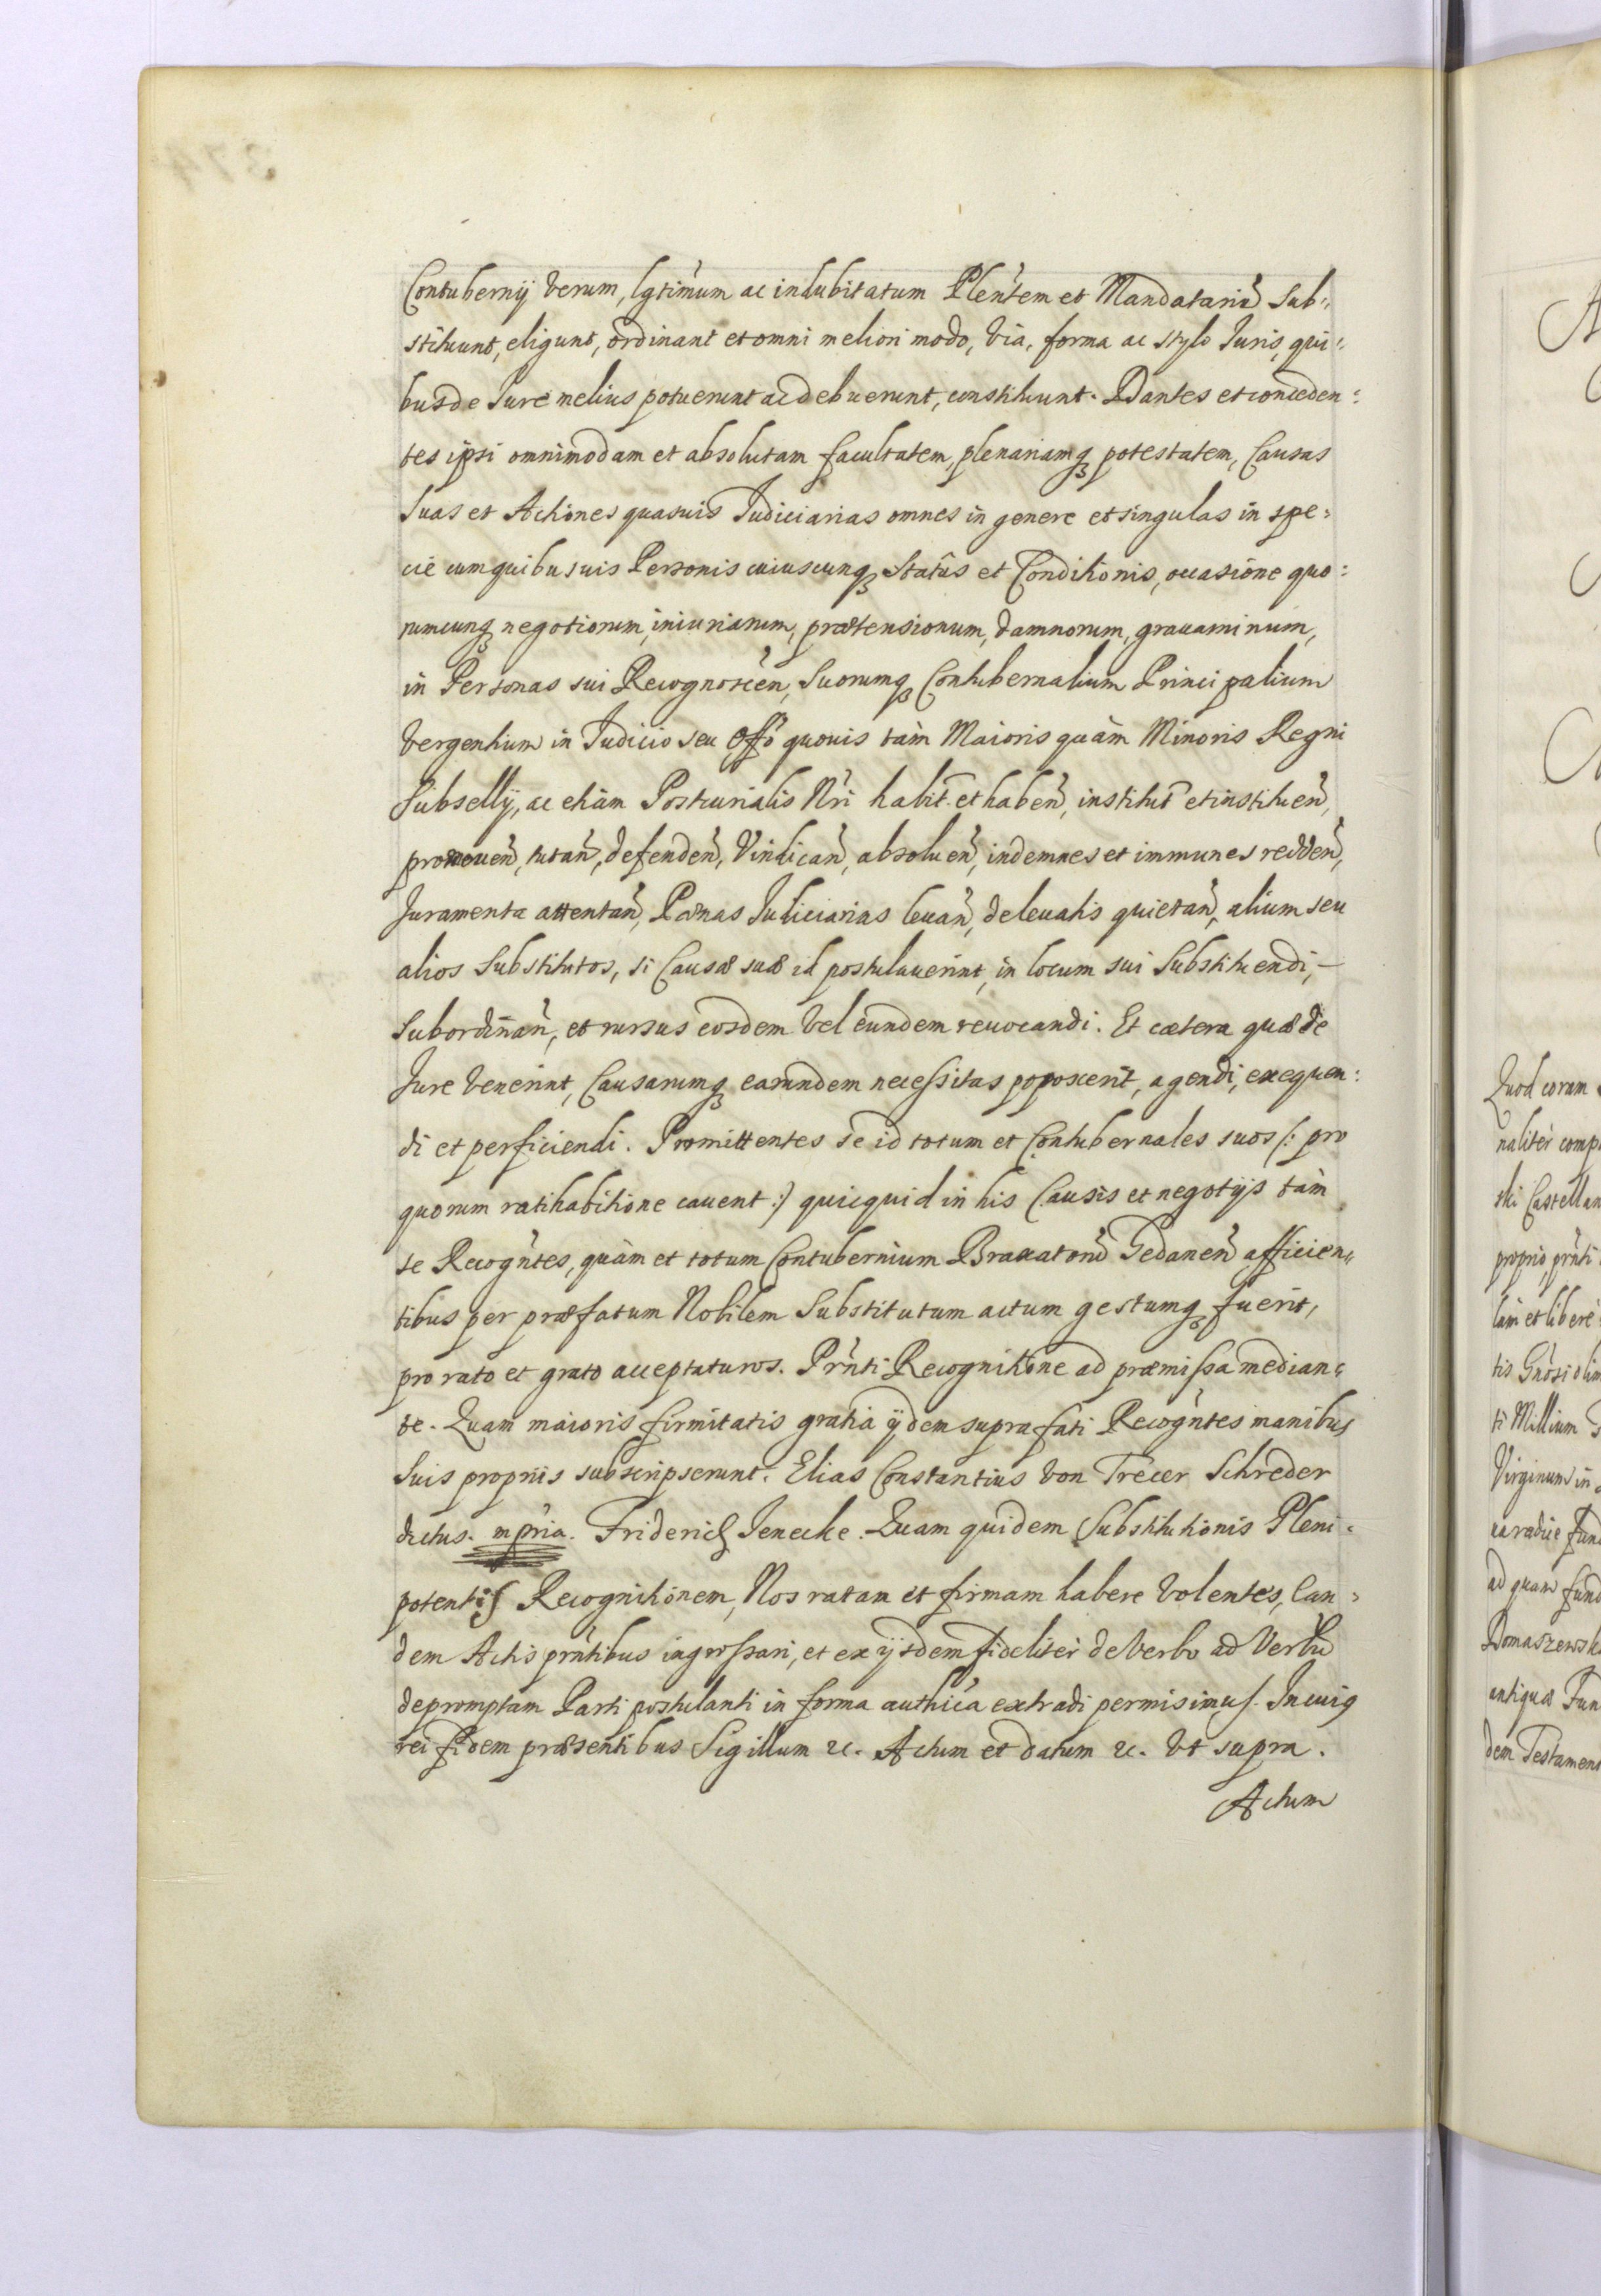 Contubernij verum, lgtimum ac indubitatum Plentem et Mandatariũ Sub=
stituunt, eligunt, ordinant et omni meliori modo, via, forma ac stylo Iuris, qui=
bus de Iure melius potuerunt ac debuerunt, constituunt. Dantes et conceden=
tes ipsi omnimodam et absolutam facultatem, plenariamq3 potestatem, Causas
Suas et Actiones quasuis Iudiciarias omnes in genere et singulas in spe=
cie cum quibusuis Personis cuiuscunq3 Statûs et Conditionis, occasione quo=
rumcunq3 negotiorum, iniuriarum, prætensionum, damnorum, grauaminum,
in Personas sui Recognoscen̄, Suorumq3 Contubernalium Principalium
vergentium in Iudicio seu Offo quouis tàm Maioris quàm Minoris Regni
Subsellij, ac etiam Postcurialis Nri habit. et haben̄, institut et instituen̄,
promouen̄, tutan̄, defenden̄, Vindican̄, absoluen̄, indemnes et immunes redden̄,
Juramenta attentan̄, Pænas Iudiciarias leuan̄, de leuatis quietan̄, alium seu
alios Substitutos, si Causæ suæ id postulauerint, in locum sui Substituendi, –
Subordinan̄, et rursus eosdem vel eundem reuocandi. Et cætera quæ de
Jure venerint, Causarumq3 earundem necessitas poposcerit, agendi, exequen=
di et perficiendi. Promittentes se id totum et Contubernales suos (: pro
quorum ratihabitione cauent :) quicquid in his Causis et negotijs tàm
se Recogntes, quàm et totum Contubernium Braxatorũ Gedanen̄ afficien=
tibus per præfatum Nobilem Substitutum actum gestumq3 fuerit,
pro rato et grato accepturos. Prnti Recognitione ad præmissa median=
te. Quam maioris firmitatis gratiâ ijdem suprafati Recogntes manibus
Suis propriis subscripserunt. Elias Constantius von Trecer Schreder
dictus. mpria. Friderich Ienecke. Quam quidem Substitutionis Pleni=
potentis Recognitionem, Nos ratam et firmam habere volentes, Ean=
dem Actis prntibus ingrossari, et ex ijsdem fideliter de verbo ad verbũ
depromptam Parti postulanti in forma authica extradi permisimus. In cuius
rei fidem præsentibus Sigillum &c. Actum et datum &c. Vt supra.
Actum
Quod coram
naliter comp
ski Castellan
proprio, prnti
lam et liberè
tis Gnosi olim
ti Millium
Virginum in
ad quam fund
Domaszewsk
antiquæ Fun
dem Testament